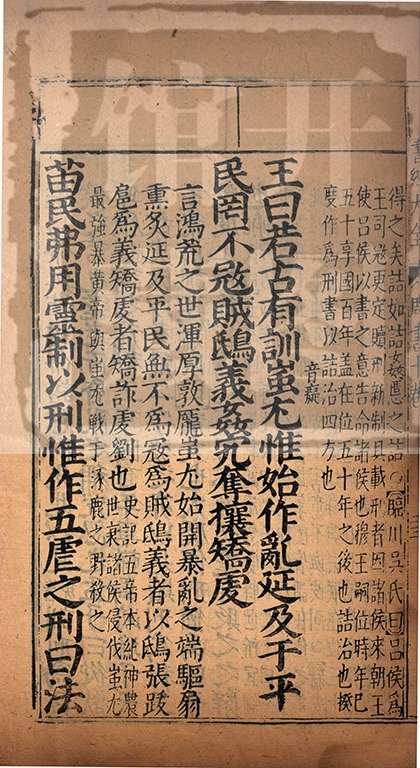 得之矣詰如詰姦慝之詰〇臨川吳氏曰呂侯爲
王司寇更定贖刑新制具載刑者因諸侯來朝王
使呂侯以書之意告命諸侯也穆王嗣位時年已
五十享國百年蓋在位五十年之後也詰治也揆
度作爲刑書以詰治四方也
音癡
王曰若古有訓蚩尤惟始作亂延及于平
民罔不寇賊鴟義姦宄奪攘矯虔
言鴻荒之世渾厚敦厖蚩尤始開暴亂之端驅扇
熏炙延及平民無不爲寇爲賊鴟義者以鴟張跋
扈爲義矯虔者矯詐虔劉也
史記五帝本紀神農
世衰諸侯侵伐蚩尤
最強暴黃帝與蚩尤戰于涿鹿之野殺之
苗民弗用靈制以刑惟作五虐之刑曰法